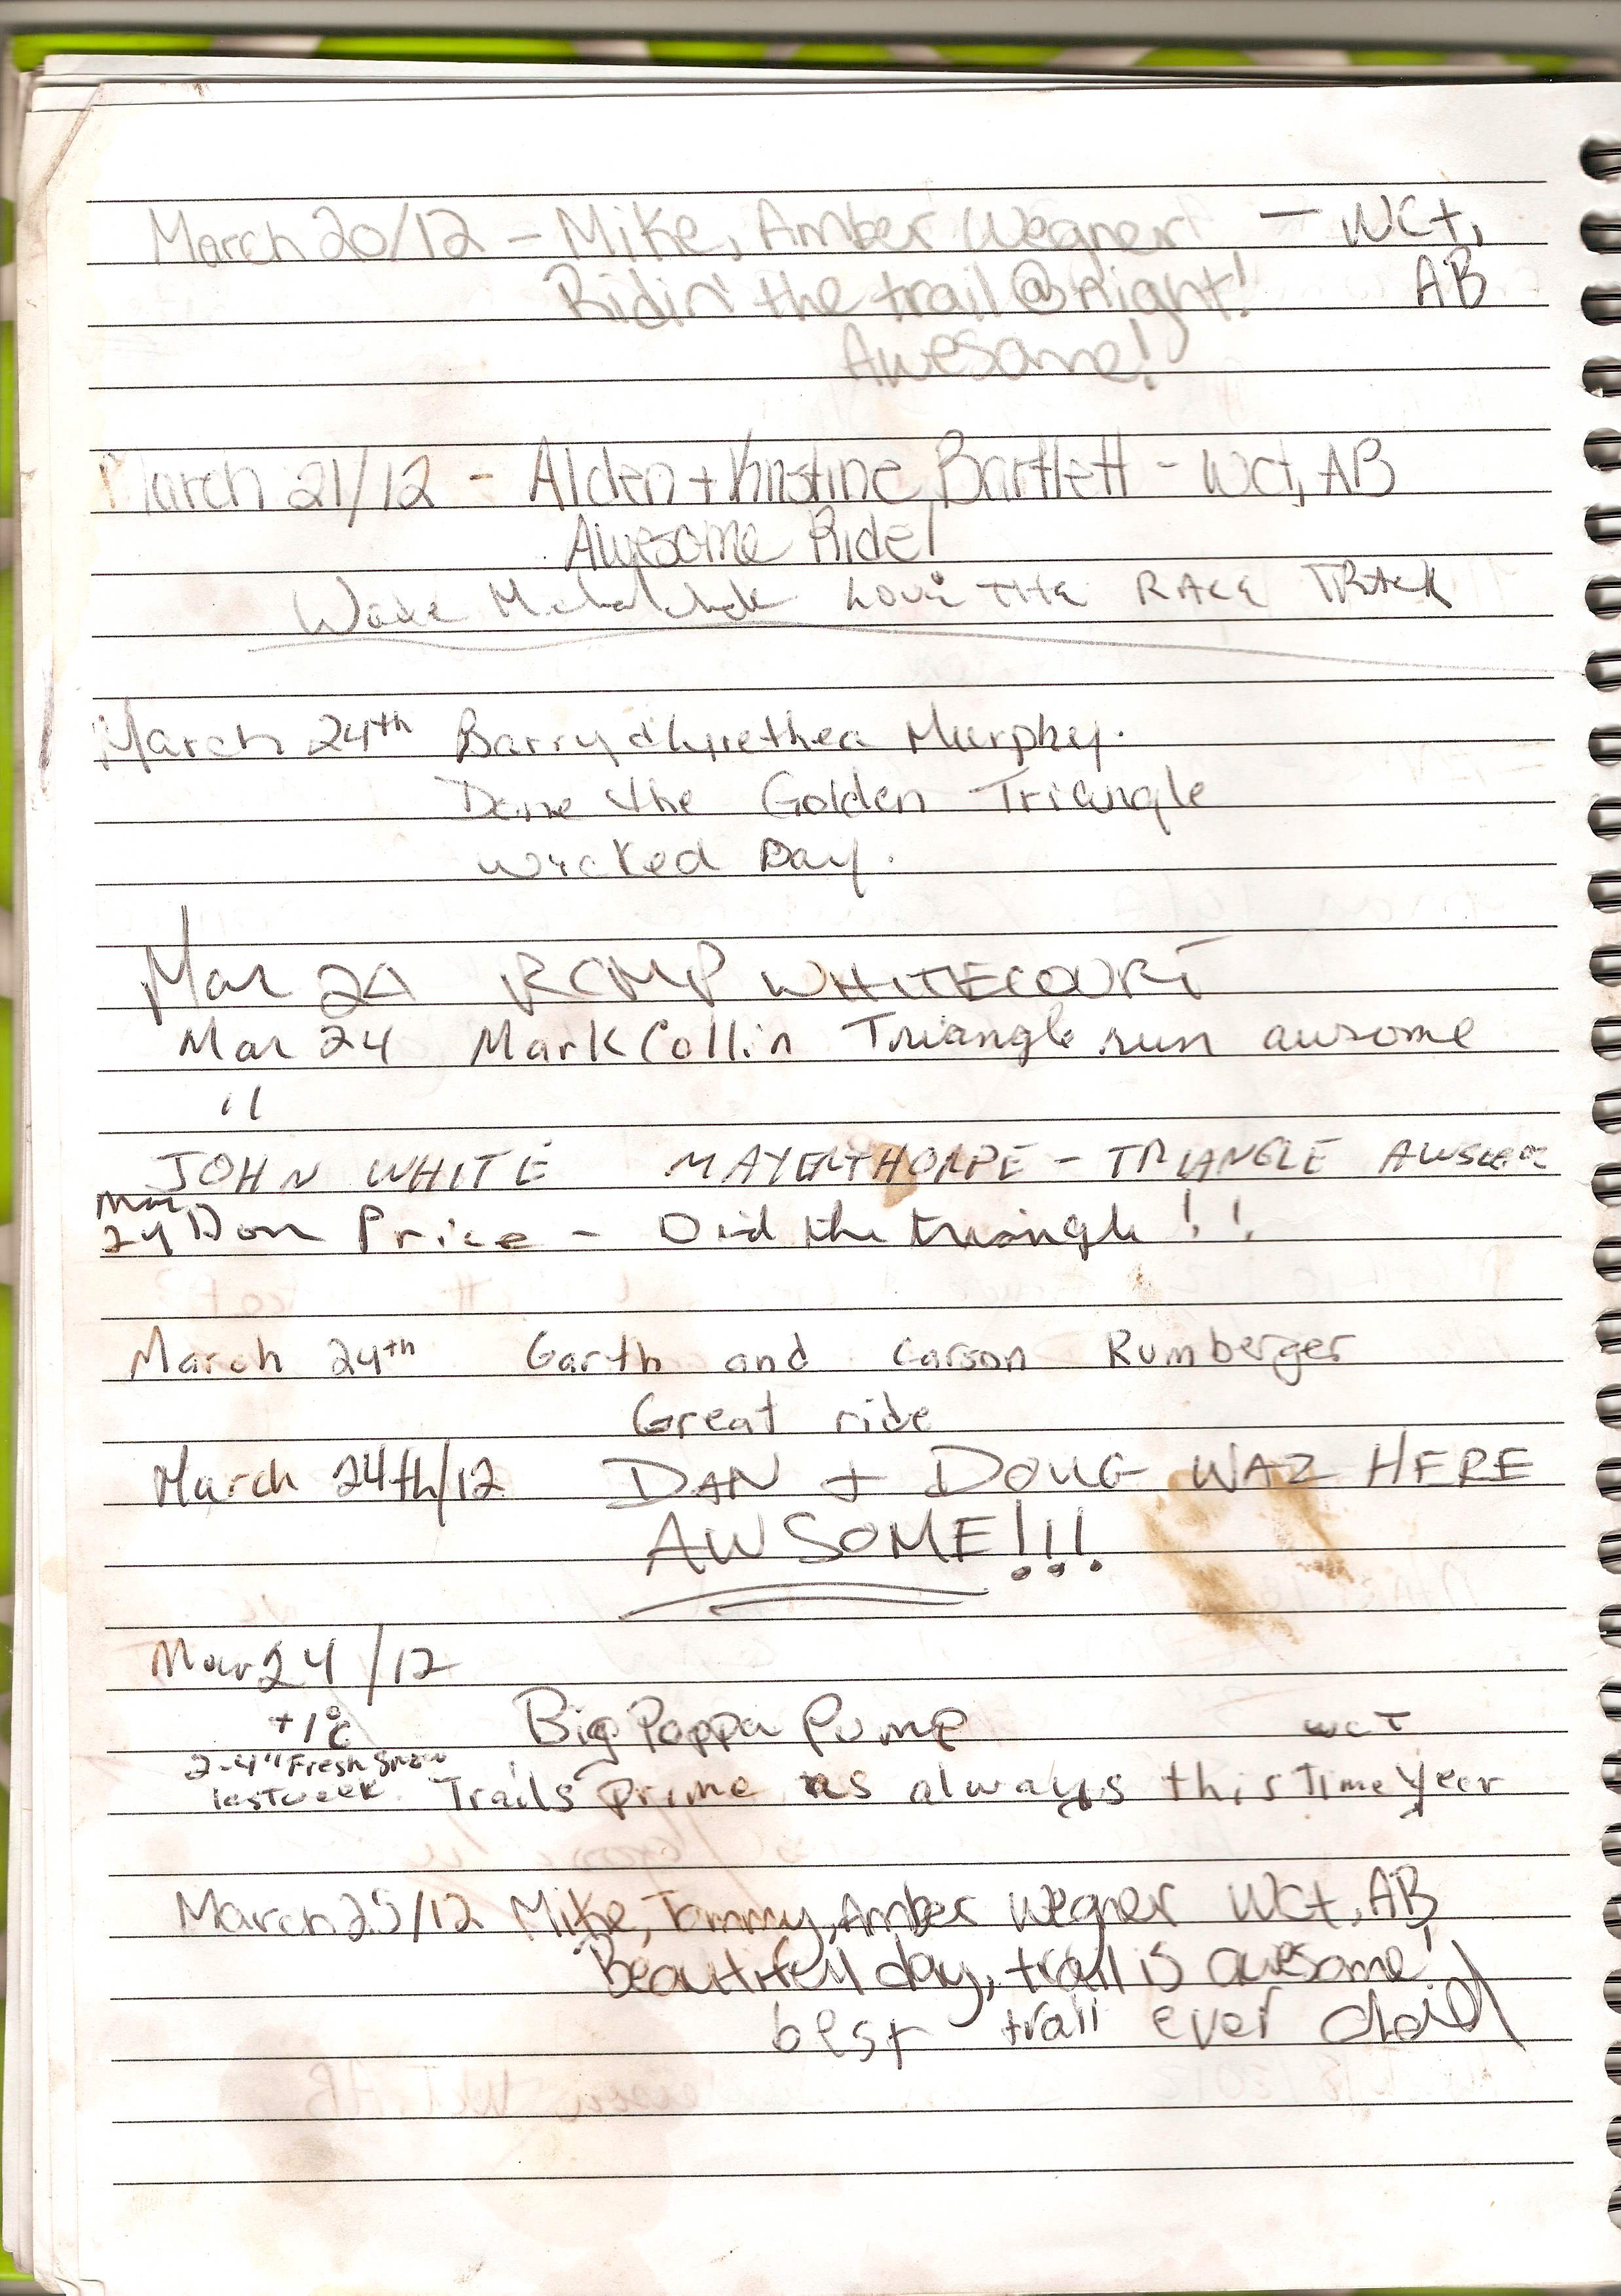 March 20/12 - Mike, Amber Wegner - WCt,
Ridin' the trail @ Night! AB
Awesome!
March 21/12 - Alden + Kristine Bartlett - Wct, AB
Awesome Ride!
Wade LOVE THE RACE TRACK
March 24th Barry & Murphy.
Done the Golden Triangle
wicked Day.
Mar 24 RCMP WHITECOURT
Mar 24 Mark Collin Triangle run awsome
"
JOHN WHITE MAYERTHORPE - TRIANGLE
Mar
24 Don Price - Did the triangle!!
March 24th Garth and Carson Rumberger
Great ride
March 24th/12 DAN + DOUG WAZ HERE
AWSOME!!!
Mar 24/12
+1°C Big Poppa Pump WCT
2-4" Fresh Snow
last week Trails prime as always this Time Year
March 25/12 Mike, Tommy, Amber Wegner WCt, AB
Beautifull day, trail is awesome!
best trail ever